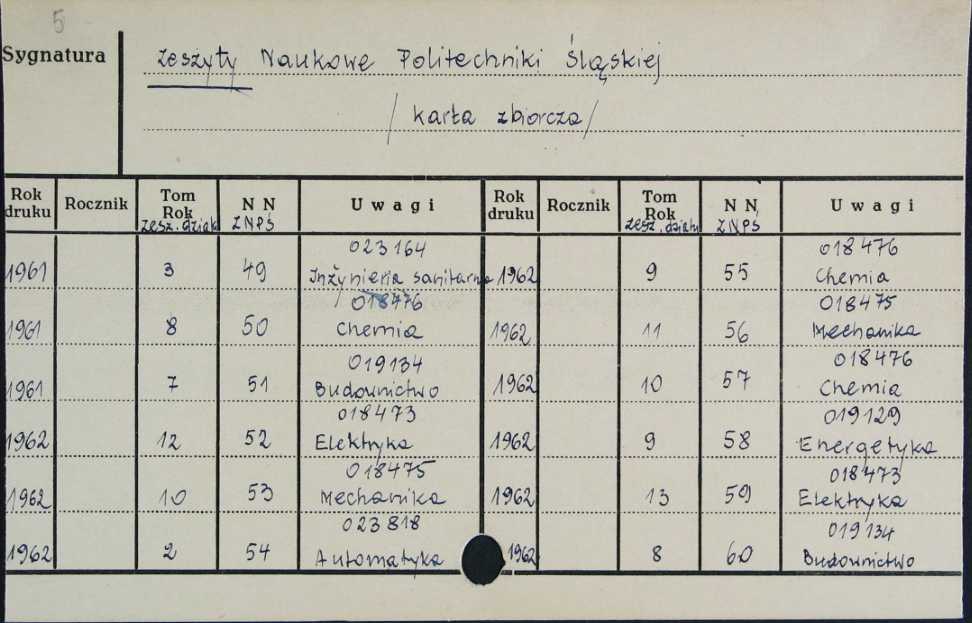 5
Sygnatura
Zeszyty Naukowe Politechniki Śląskiej
/karta zbiorcza/
Rok druku Rocznik Tom Rok zesz. działu N N ZNPŚ Uwagi Rok druku Rocznik Tom Rok zesz. działu N N ZNPŚ Uwagi
1961 3 49 023164 Inżynieria sanitarna 1962 9 55 018476 Chemia
1961 8 50 018476 Chemia 1962 11 56 018475 Mechanika
1961 7 51 019134 Budownictwo 1962 10 57 018476 Chemia
1962 12 52 018473 Elektryka 1962 9 58 019129 Energetyka
1962 10 53 018475 Mechanika 1962 13 59 018473 Elektryka
1962 2 54 023818 Automatyka 1962 8 60 019134 Budownictwo